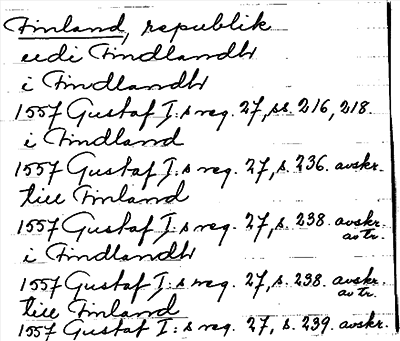 Finland, republik
udi Findlandtt
i Findlandtt
1557 Gustaf I:s reg. 27, ss. 216, 218.
i Findland
1557 Gustaf I:s reg. 27, s. 236. avskr.
till Finland
1557 Gustaf I:s reg. 27, s. 238. avskr. av tr.
i Findlandtt
1557 Gustaf I:s reg. 27, s. 238. avskr. av tr.
till Finland
1557 Gustaf I:s reg. 27, s. 239. avskr.